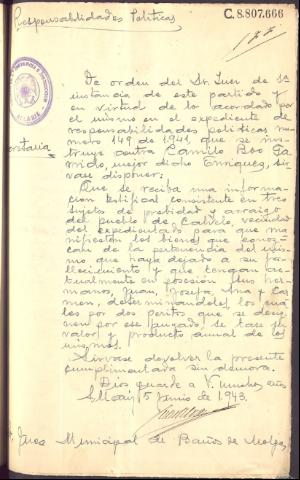 Responsabilidades Políticas
C.8.807.666
De orden del Sr Juez de 1ª
instancia de este partido y
en virtud de lo acordado por
el mismo en el expediente de
responsabilidades politicas nu-
mero 149 de 1941, que se ins-
truye contra Camilo Boo Ga-
rrido, mejor dicho Enriquez, sir-
vase disponer:
Que se reciba una informa-
cion testifical consistente en tres
sujetos de probidad y arraigo
del pueblo de Calvelo, vecindad
del expedientado para que ma-
nifiesten los bienes que conoz-
can de la pertenencia del mis-
mo que haya dejado a su fa-
llecimiento y que tengan ac-
tualmente en posesión sus her-
manos, Juan, Rosa, Ana y Car-
men, determinandolos, los cua-
les por dos peritos que se desig-
nen por ese juzgado, se tase su
valor y producto anual de los
mismos.
Sirvase devolver la presente
cumplimentada sin demora.
Dios guarde a V. muchos años
5 Junio de 1943.
Juez Municipal de Baños de Molgas